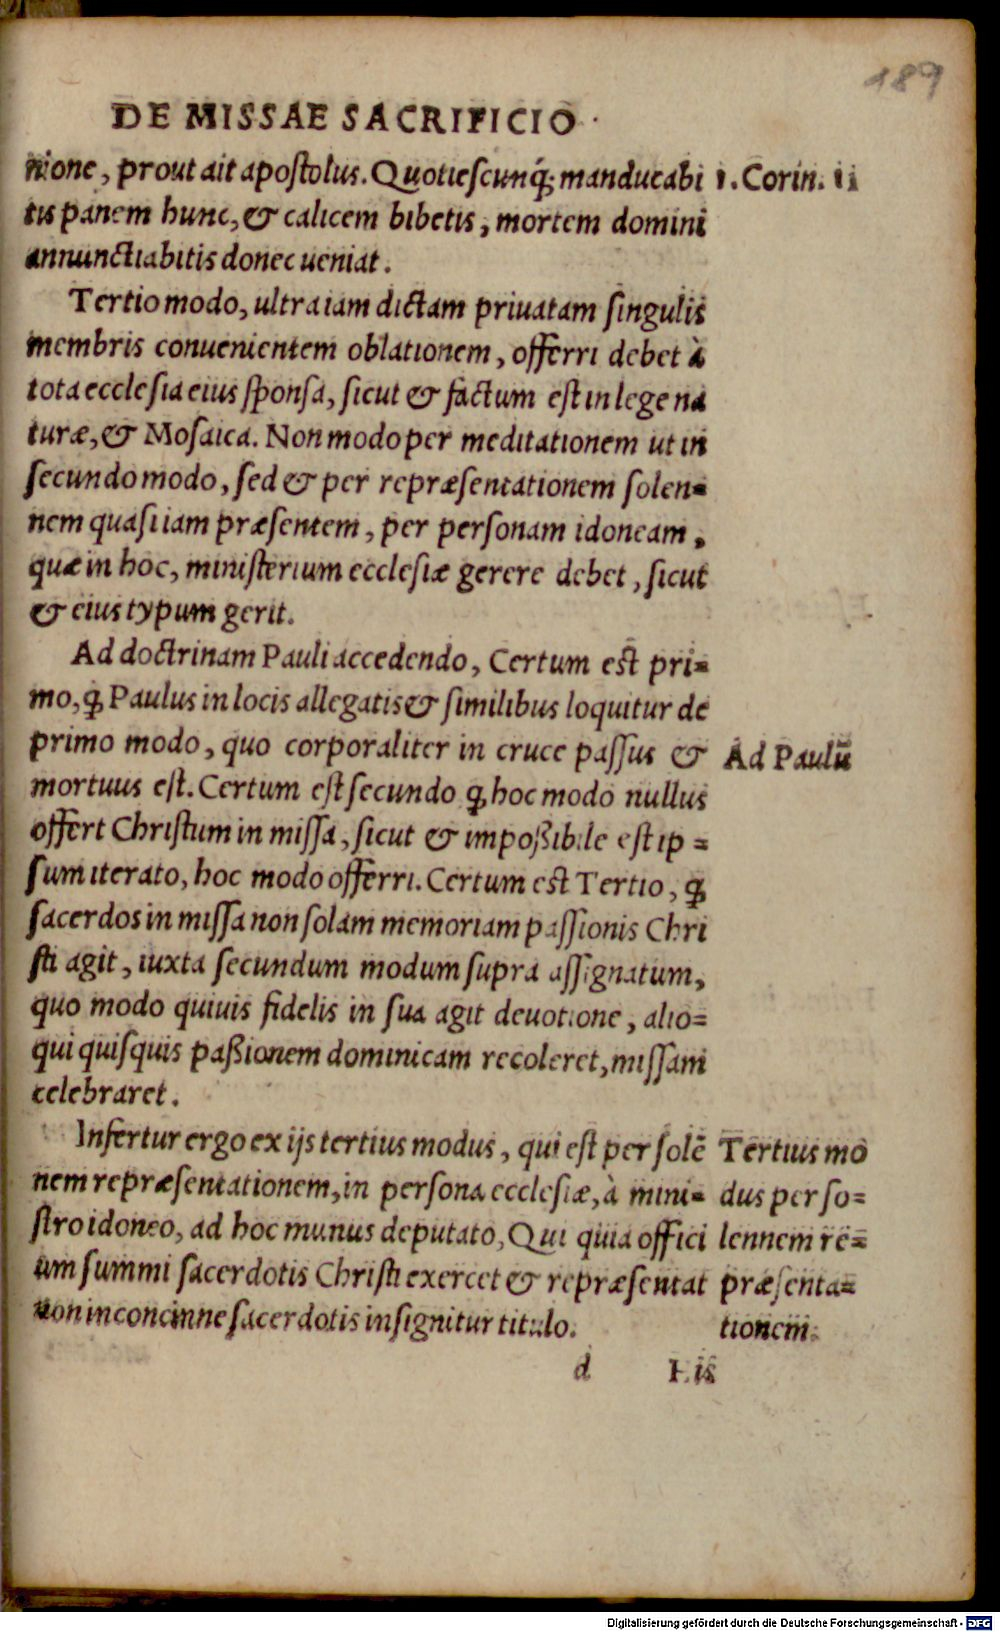 189
DE MISSAE SACRIFICIO.
nione, prout ait apostolus. Quotiescunq́; manducabi
1. Corin. 11
tis panem hunc, & calicem bibetis, mortem domini
annunctiabitis donec ueniat.
Tertio modo, ultra iam dictam priuatam singulis
membris conuenientem oblationem, offerri debet à
tota ecclesia eius sponsa, sicut & factum est in lege na
turæ, & Mosaica. Non modo per meditationem ut in
secundo modo, sed & per repræsentationem solen=
nem quasi iam præsentem, per personam idoneam,
quæ in hoc, ministerium ecclesiæ gerere debet, sicut
& eius typum gerit.
Ad doctrinam Pauli accedendo, Certum est pri=
mo, ꝙ Paulus in locis allegatis & similibus loquitur de
primo modo, quo corporaliter in cruce passus &
Ad Paulū
mortuus est. Certum est secundo ꝙ hoc modo nullus
offert Christum in missa, sicut & impoßibile est ip=
sum iterato, hoc modo offerri. Certum est Tertio, ꝙ
sacerdos in missa non solam memoriam passionis Chri
sti agit, iuxta secundum modum supra assignatum,
quo modo quiuis fidelis in sua agit deuotione, alio=
qui quisquis paßionem dominicam recoleret, missam
celebraret.
Infertur ergo ex ijs tertius modus, qui est per solē
nem repræsentationem, in persona ecclesiæ, à mini=
stro idoneo, ad hoc munus deputato, Qui quia offici
um summi sacerdotis Christi exercet & repræsentat
non inconcinne sacerdotis insignitur titulo.
Tertius mo
dus per so=
lennem re=
præsenta=
tionem.
d His
Digitalisierung gefördert durch die Deutsche Forschungsgemeinschaft - DFG